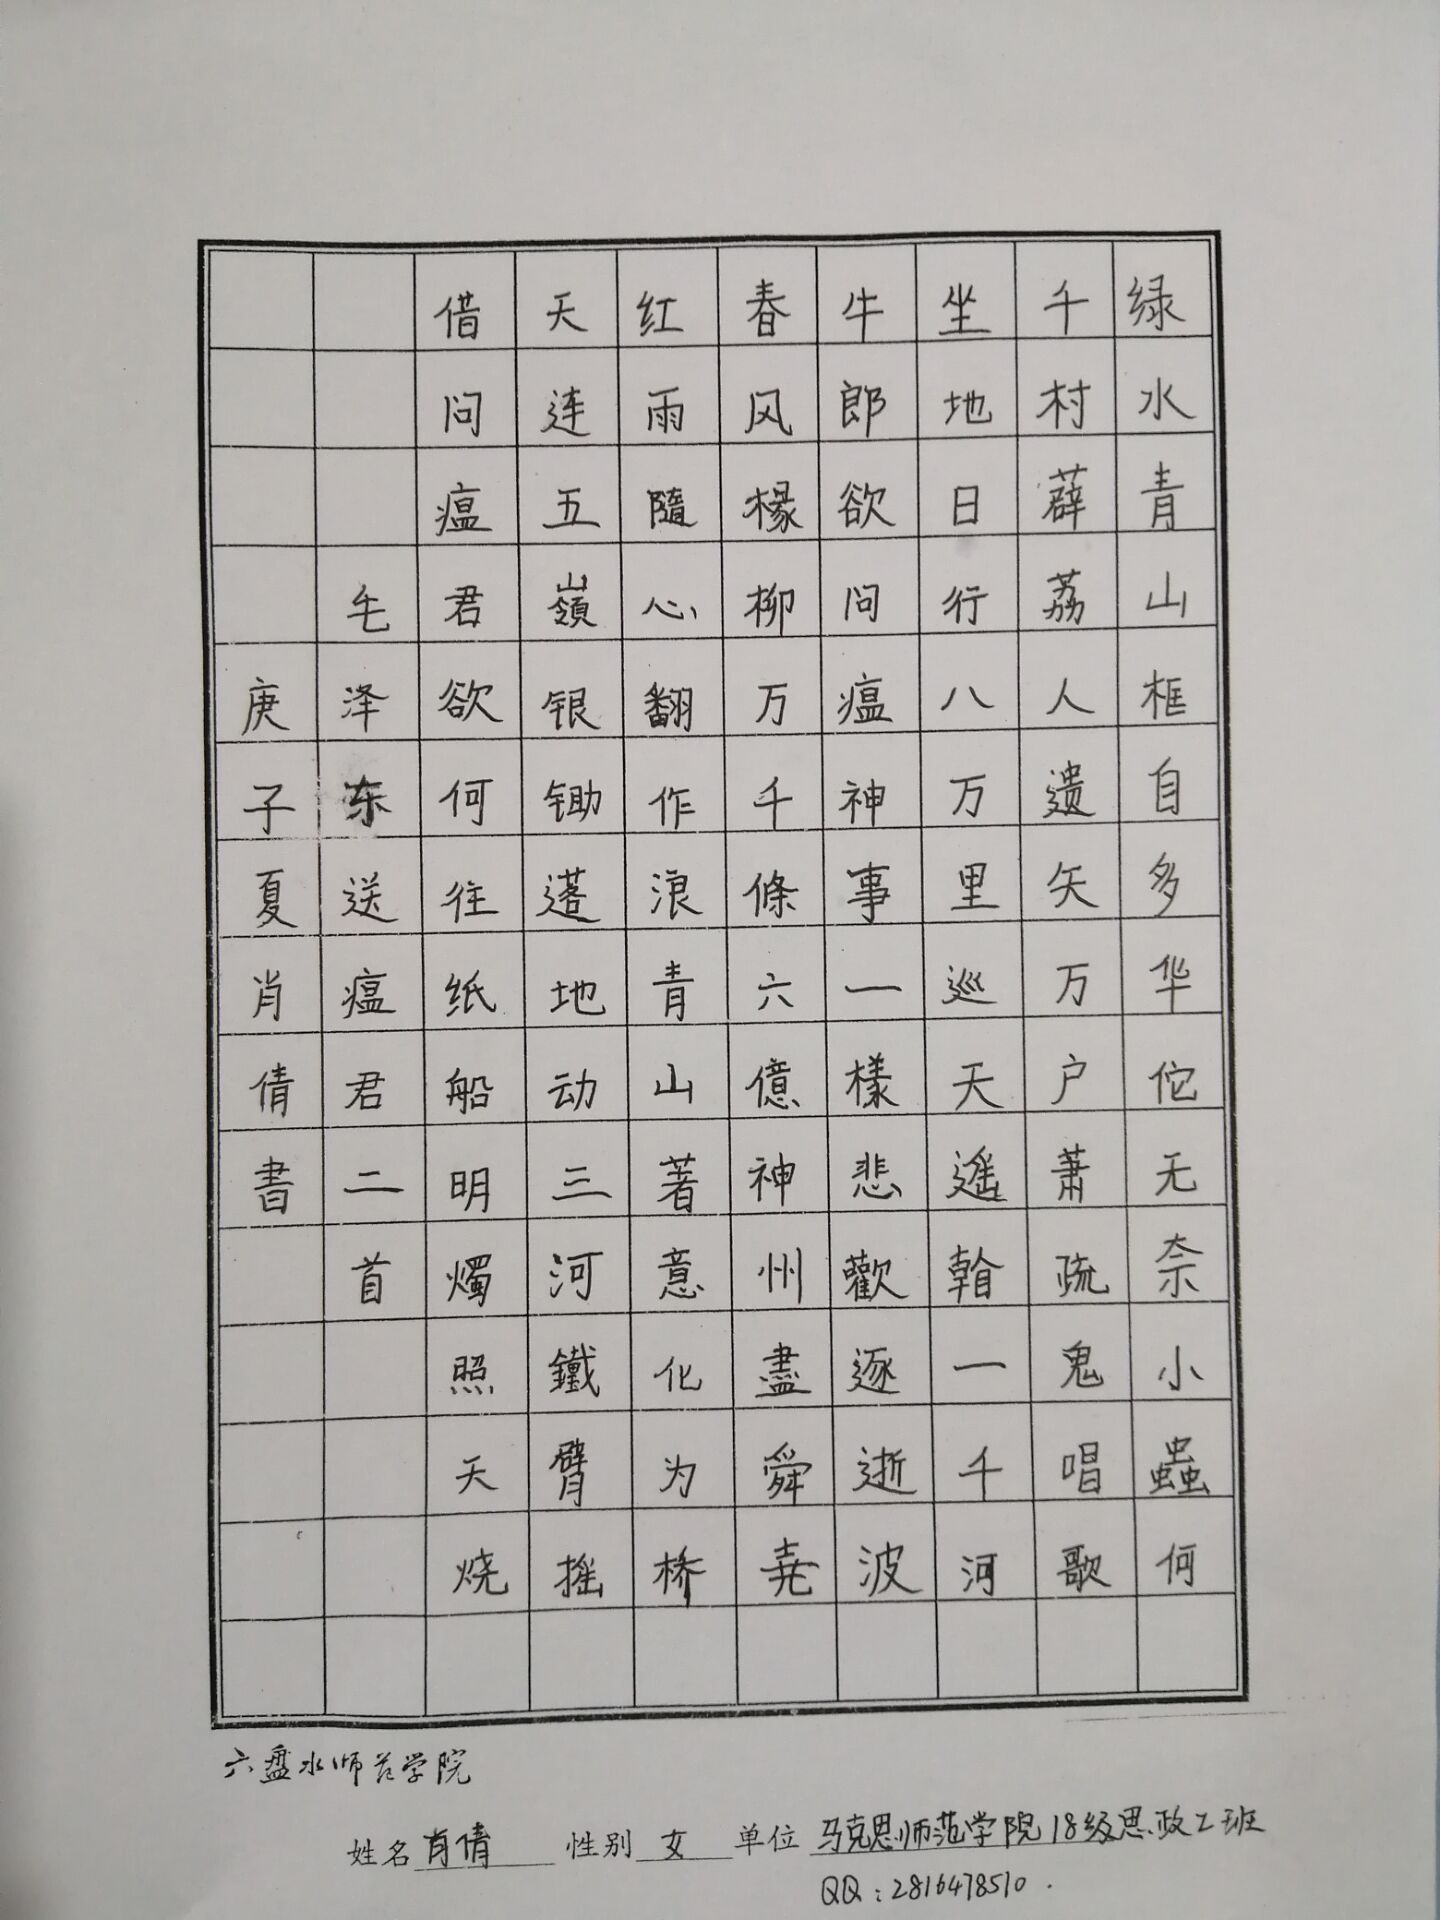 绿水青山框自多华佗无奈小蟲何
千村薜荔人遗矢万户萧疏鬼唱歌
坐地日行八万里巡天遥看一千河
牛郎欲问瘟神事一样悲歡逐逝波
春风楊柳万千條六億神州盡舜尧
红雨隨心翻作浪青山著意化为桥
天连五嶺银锄落地动三河鐵臂摇
借问瘟君欲何往纸船明燭照天烧
毛泽东送瘟君二首
庚子夏肖倩書
六盘水师范学院
姓名 肖倩 性别 女 单位 马克思师范学院18级思政2班
QQ:2816478510.